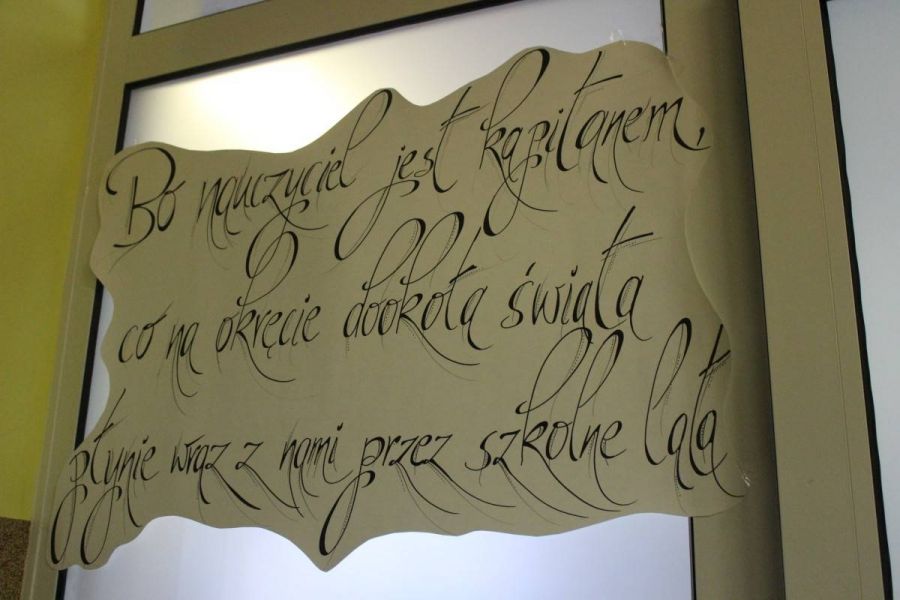 Bo nauczyciel jest kapitanem,
co na okręcie dookoła świata
płynie wraz z nami przez szkolne lata